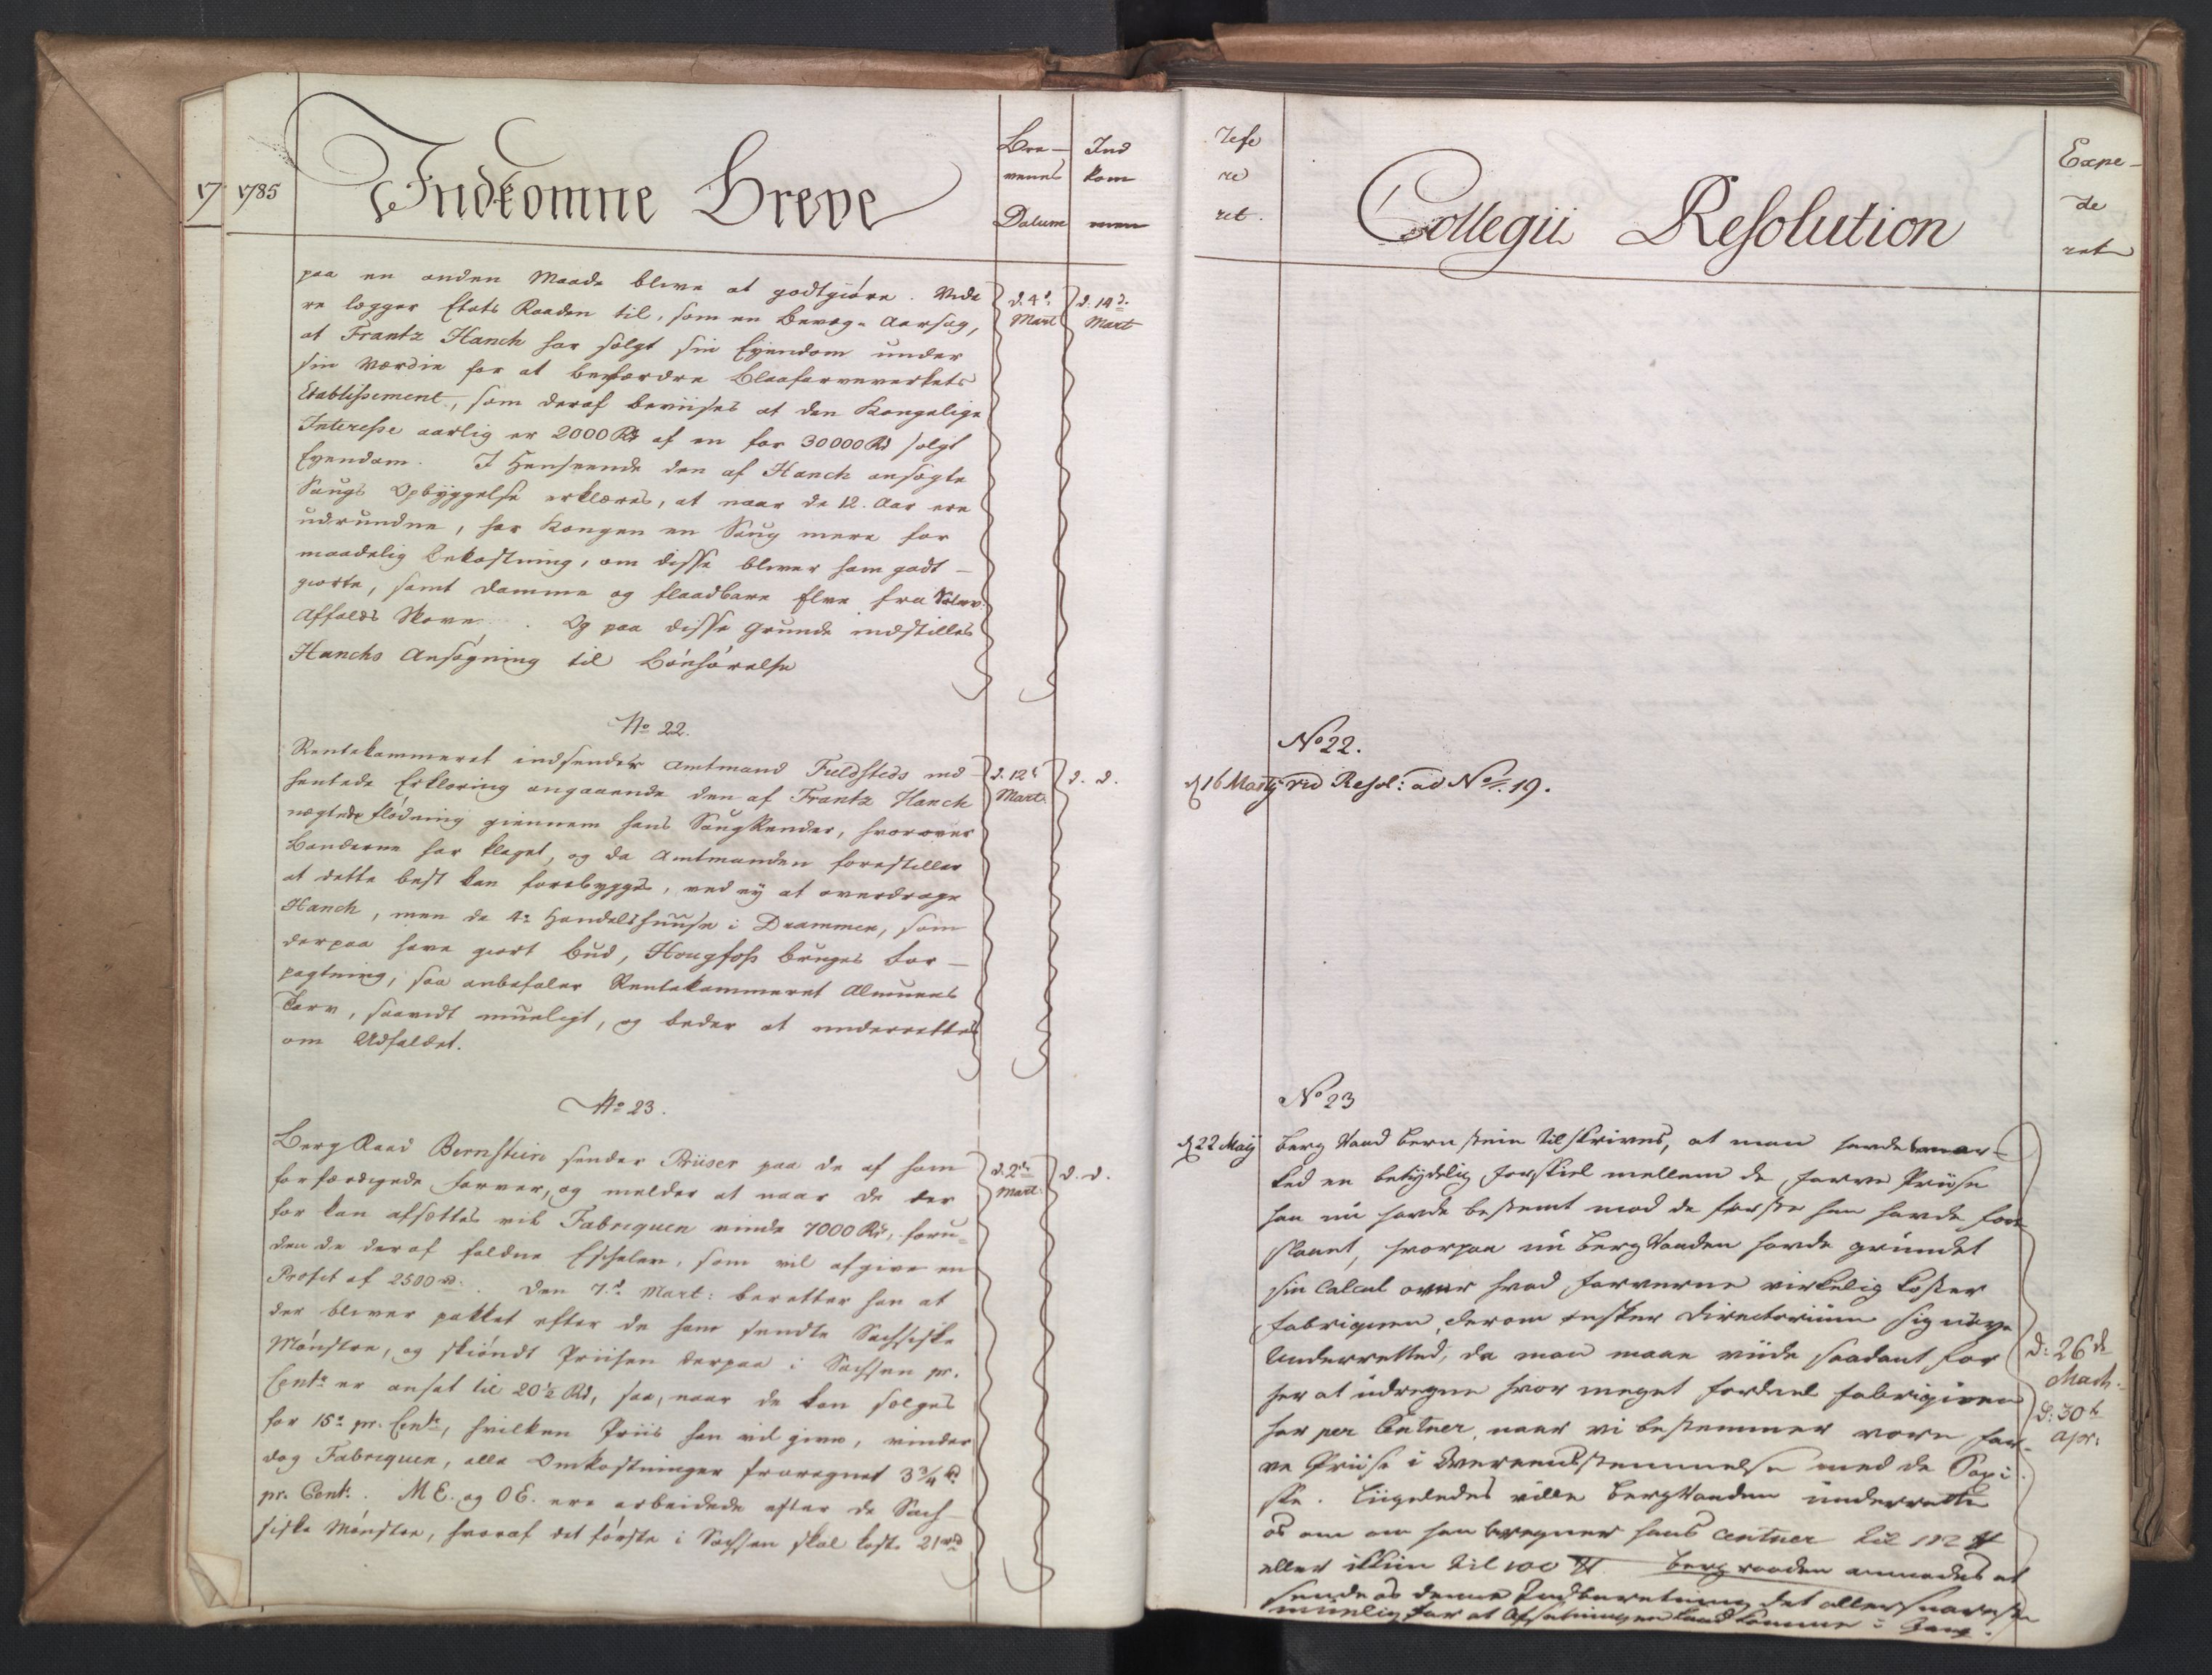 17
1785
Indkomne Breve
Bre-
venes
Datum
Ind
kom
men
paa en anden Maade blive at godtgiøre. Vide
re legger Etats Raaden til, som en Bevæg-Aarsag,
at Frantz Hanch har solgt sin Eyendom under
sin Værdie for at befordre Blaafarveverkets
Etablissement, som deraf beviises at den Kongelige
Interesse aarlig er 2000 Rd af en for 30000 Rd solgt
Eyendom. I Henseende den af Hanch ansøgte
Saugs Opbyggelse erklæres, at naar de 12. Aar ere
udrundne, har Kongen en Saug mere for
maadelig Bekostning, om disse bliver ham godt-
giorte, samt Damme og flaadbare Elve fra
Affalds Skove. Og paa disse Grunde indstilles
Hanchs Ansøgning til Bönhörelse
d. 4d
Mart
d: 14d
Mart
No 22.
Rentekammeret indsender Amtmand Fieldsteds ind-
hentede Erklæring angaaende den af Frantz Hanch
nægtede flödning giennem hans SaugRender, hvorover
Bönderne har klaget, og da Amtmanden forestiller
at dette best kan forebygges, ved ey at overdrage
Hanch, men de 4re Handelshuuse i Drammen, som
derpaa have giort Bud, Hougfoss Bruges For-
pagtning, saa anbefaler Rentekammeret Almuens
Tarv, saavidt mueligt, og beder at underrettes
om Udfaldet.
d. 12t
Mart.
d. d.
No 23.
Berg Raad Bernstein sender Priiser paa de af ham
forfærdigede Farver, og melder at naar de der
for kan afsættes vil Fabriquen vinde 7000 Rd, foru-
den de deraf faldne Eschelen, som vil afgive en
Profit af 2500 rd. Den 7d Mart: beretter han at
der bliver pakket efter de ham sendte Sachsiske
Mönstre, og skiöndt Priisen derpaa i Sachsen pr.
Centr er ansat til 20½ Rd, saa, naar de kan sælges
for 15 pr. Centr, hvilken Priis han vil give, vinder
dog Fabriquen, alle Omkostninger fraregnet 3¾ rd
pr. Centr. M E. og O E. ere arbeidede efter de Sach-
siske Mönstre, hvoraf det förste i Sachsen skal koste 21 rd
d. 2de
Mart.
d. d.
Refe
re
ret.
Collegii Resolution
Expe-
de
ret
No 22.
d 16 Martij vid Resol: ad No 19.
No 23
d 22 Maij
Berg Raad Bernstein tilskrives, at man havde bemær-
ked en betydelig Forskiel mellem de Farve Priise
han nu havde bestemt mod de første han havde fore
slaaet, hvorpaa nu Berg Raaden havde grundet
sin Calcul over hvad Farverne virkelig koster
Fabriquen, derom ønsker Directorium sig nøye
Underretted, da man maae viide saadant for
her at udregne hvor meget Fordeel Fabriquen
har per Centner, naar vi bestemmer vore Far-
ve Priise i Overeensstemmelse med de Saxi
ske. Liigeledes ville BergRaaden underrette
os om om han beregner hans Centner til 112 ℔
eller ikkun til 100 ℔ Berg raaden anmodes at
sende os denne Indberetning det allersnareste
muelig for at Afsætningen kand komme i Gang.
d: 26de
Mart.
d: 30te
Apr: